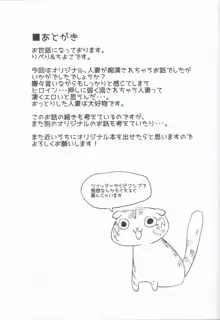 ■あとがき
お世話になっております。
りぺり&ちよこです。
今回はオリジナル、人妻が痴漢されちゃうお話でしたが
いかがでしたでしょうか?
嫌々言いながらもしっかりと感じてしまう
ヒロイン…押しに弱く流されちゃう人妻って
凄くエロいと思うんだ…。
おっとりした人妻は大好物です。
このお話の続きも考えているのですが、
また別のオリジナルのお話も考えていたり…
また近いうちにオリジナル本を出せたらと思いますので
よろしくお願いします!
ツイッターやピクシブで
感想なんかもらえると
喜んじゃいます